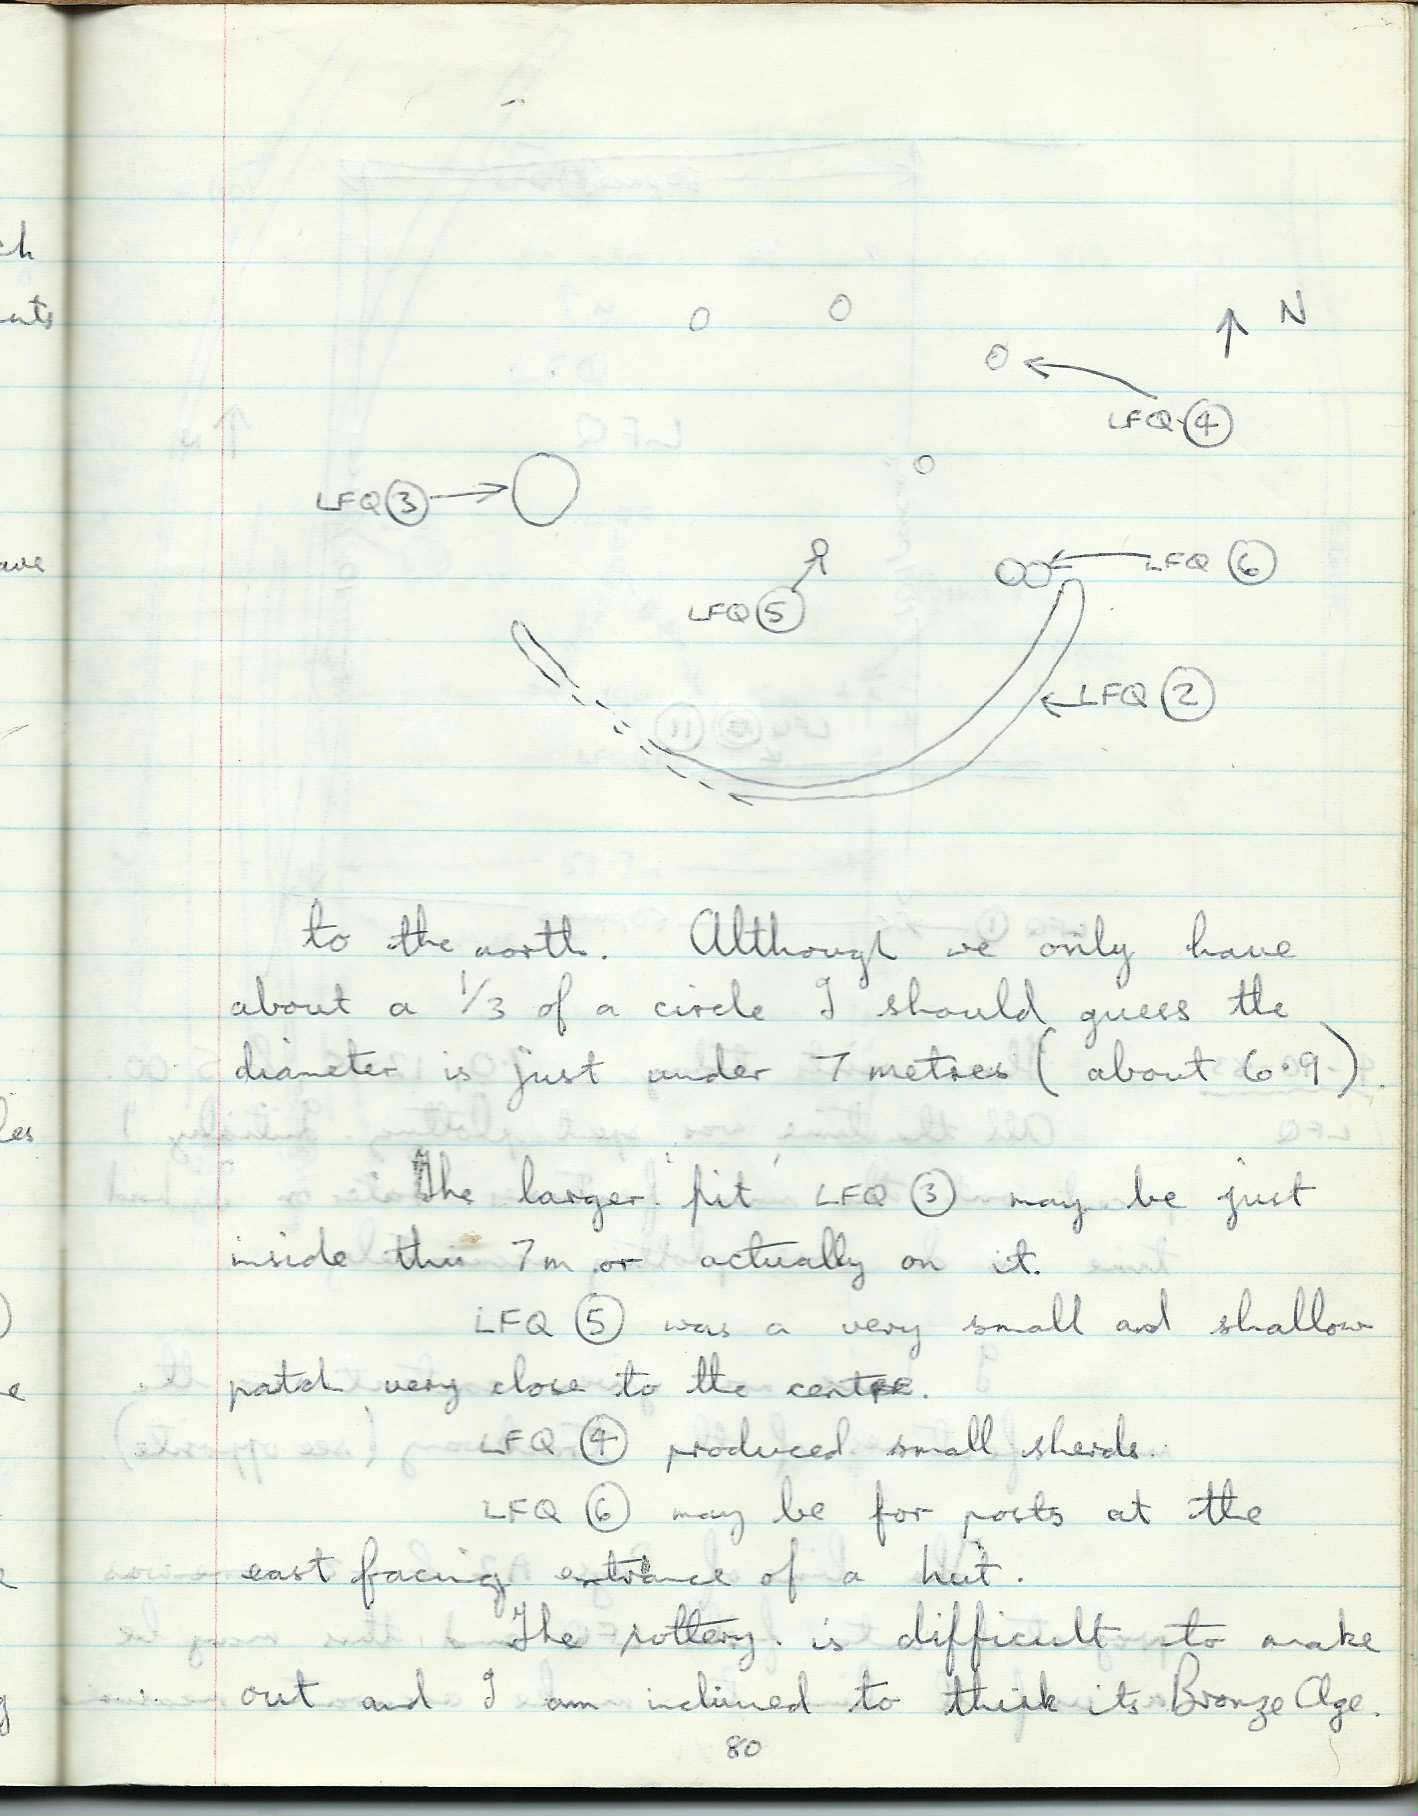 N
LFQ ④
LFQ ③
LFQ ⑥
LFQ ⑤
LFQ ②
to the north. Although we only have
about a 1/3 of a circle I should guess the
diameter is just under 7 metres (about 6.9).
The larger pit LFQ ③ may be just
inside this 7m or actually on it.
LFQ ⑤ was a very small and shallow
patch very close to the centre.
LFQ ④ produced small sherds.
LFQ ⑥ may be for posts at the
east facing entrance of a hut.
The pottery is difficult to make
out and I am inclined to think its Bronze Age.
80